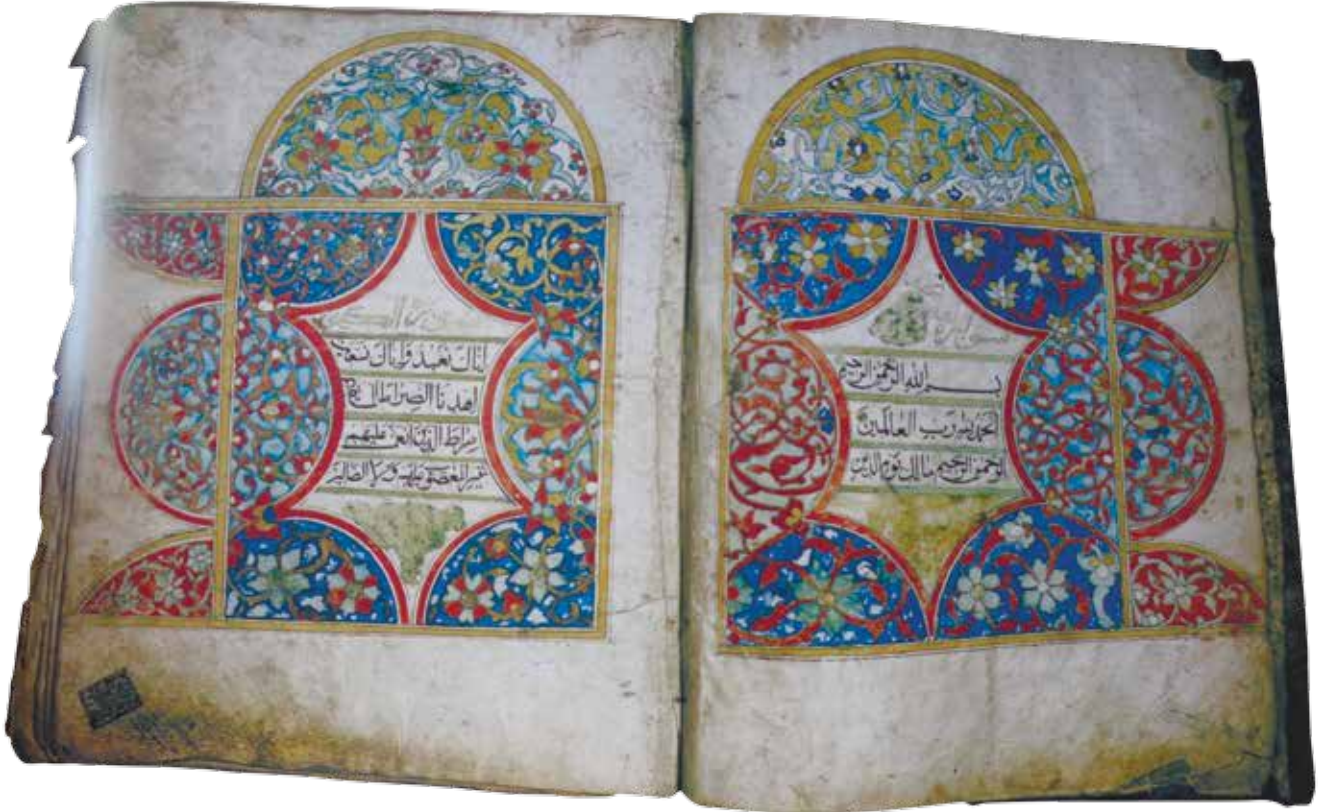 بسم الله الرحمن الرحيم
الحمد لله رب العالمين
الرحمن الرحيم مالك يوم الدين
إياك نعبد وإياك نستعين
اهدنا الصراط
صراط الذين أنعمت عليهم
غير المغضوب عليهم ولا الضالين